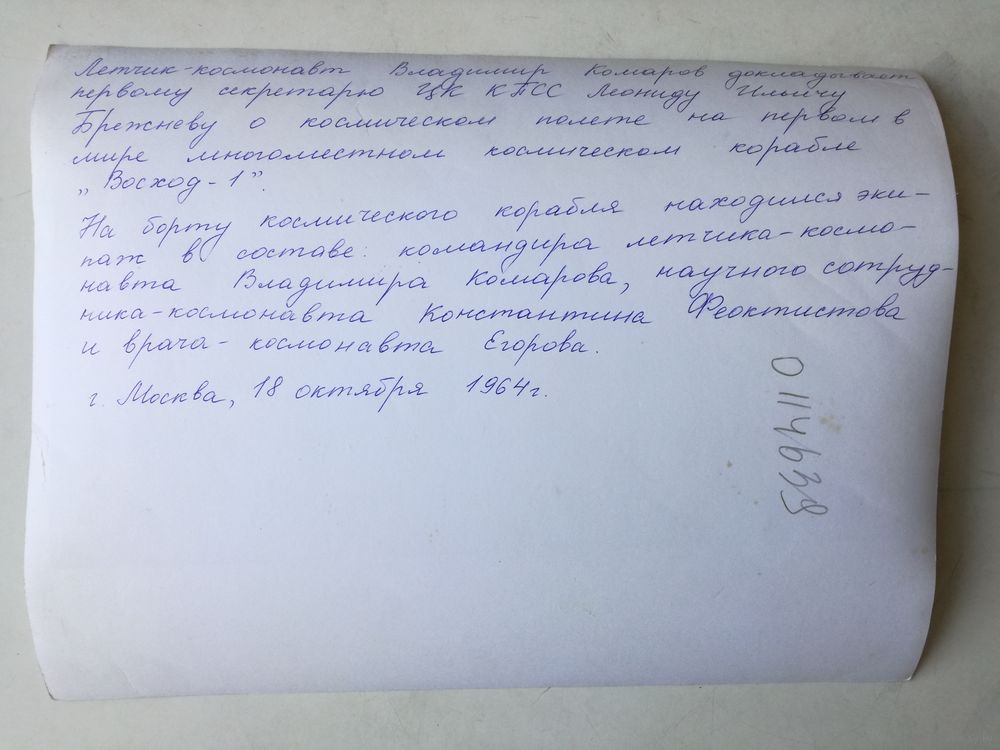 Летчик-космонавт Владимир Комаров докладывает
первому секретарю ЦК КПСС Леониду Ильичу
Брежневу о космическом полете на первом в
мире многоместном космическом корабле
„Восход-1”.
На борту космического корабля находился эки-
паж в составе: командира летчика-космо-
навта Владимира Комарова, научного сотруд-
ника-космонавта Константина Феоктистова
и врача-космонавта Егорова.
г. Москва, 18 октября 1964г.
0114638